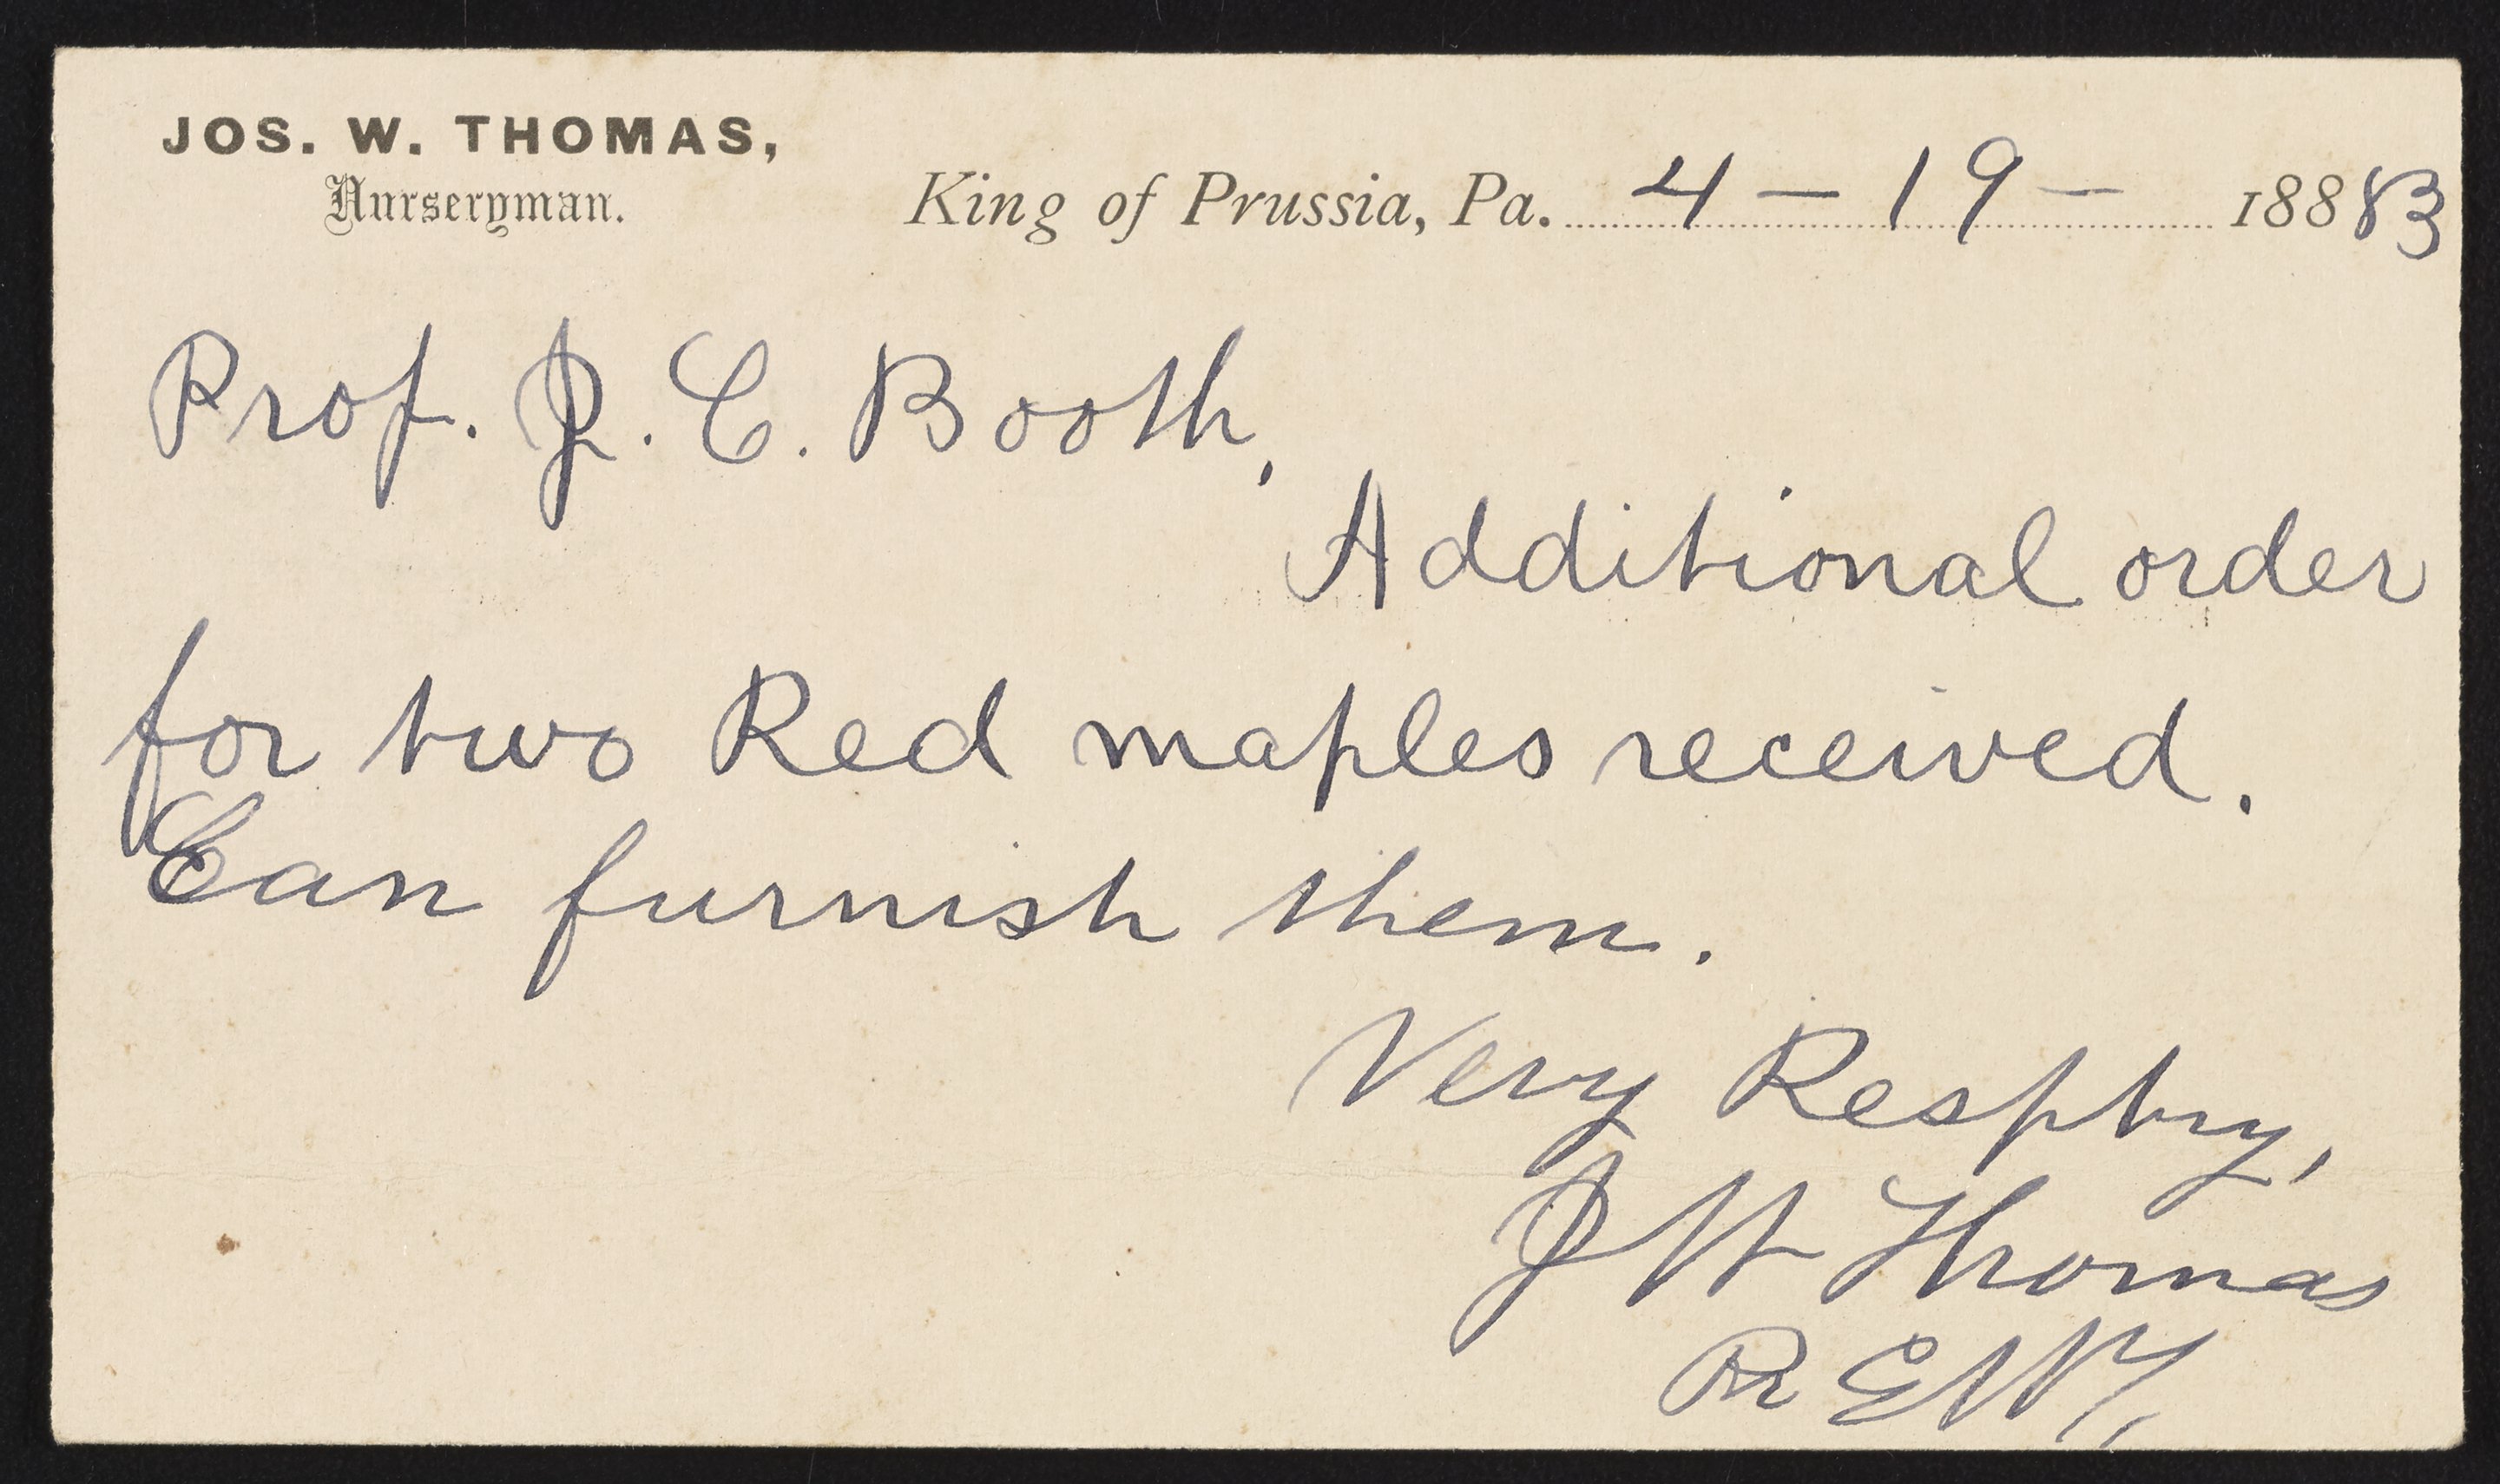 JOS. W. THOMAS,
Nurseryman.
King of Prussia, Pa. 4 — 19 — 18883
Prof. J. C. Booth,
Additional order
for two Red maples received.
Can furnish them.
Very Respty,
J W Thomas
R E W